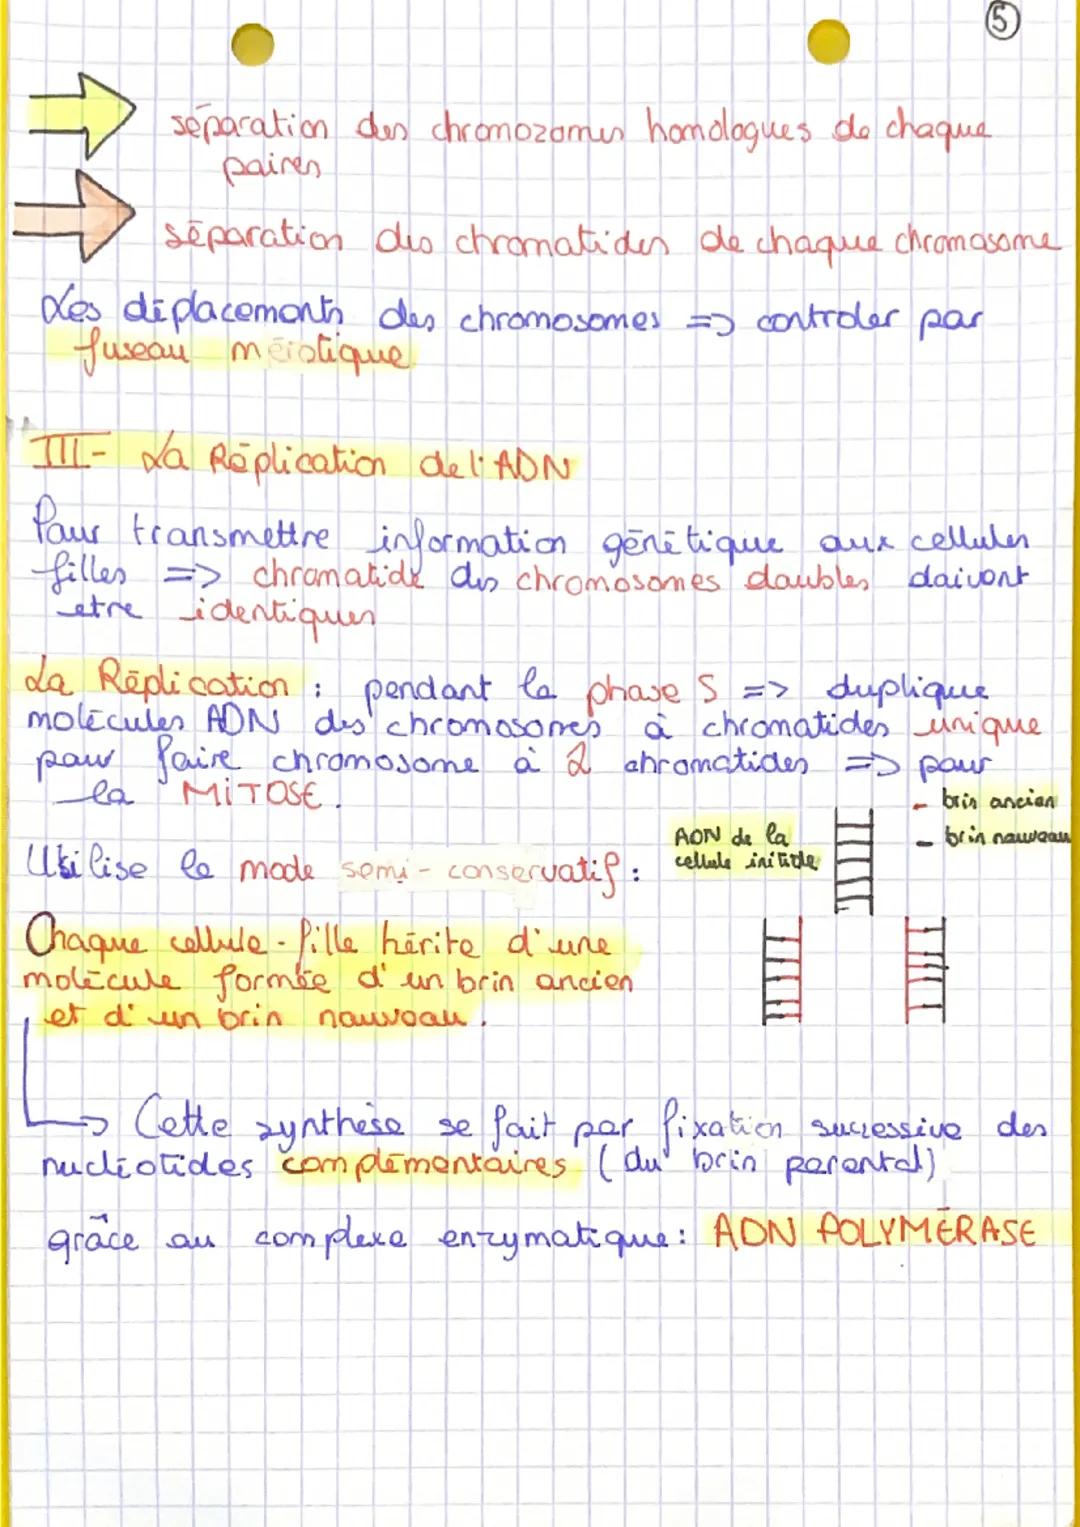 5
séparation des chromozomes homologues de chaque
paires
séparation des chromatides de chaque chromosome
Les déplacements des chromosomes => controler par
fuseau méiotique
III- La Réplication de l'ADN
Pour transmettre information génétique aux cellules
filles => chromatide des chromosomes doubles doivent
etre identiques
La Réplication : pendant la phase S => duplique
molécules ADN des chromosomes à chromatides unique
pour faire chromosome à 2 chromatides => pour
la MITOSE.
- brin ancien
- brin nouveau
ADN de la
cellule initiale
Utilise le mode semi-conservatif :
Chaque cellule-fille hérite d'une
molécule formée d'un brin ancien
et d'un brin nouveau.
Cette synthèse se fait par fixation successive des
nucléotides complémentaires (du brin parental)
grâce au complexe enzymatique: ADN POLYMÉRASE